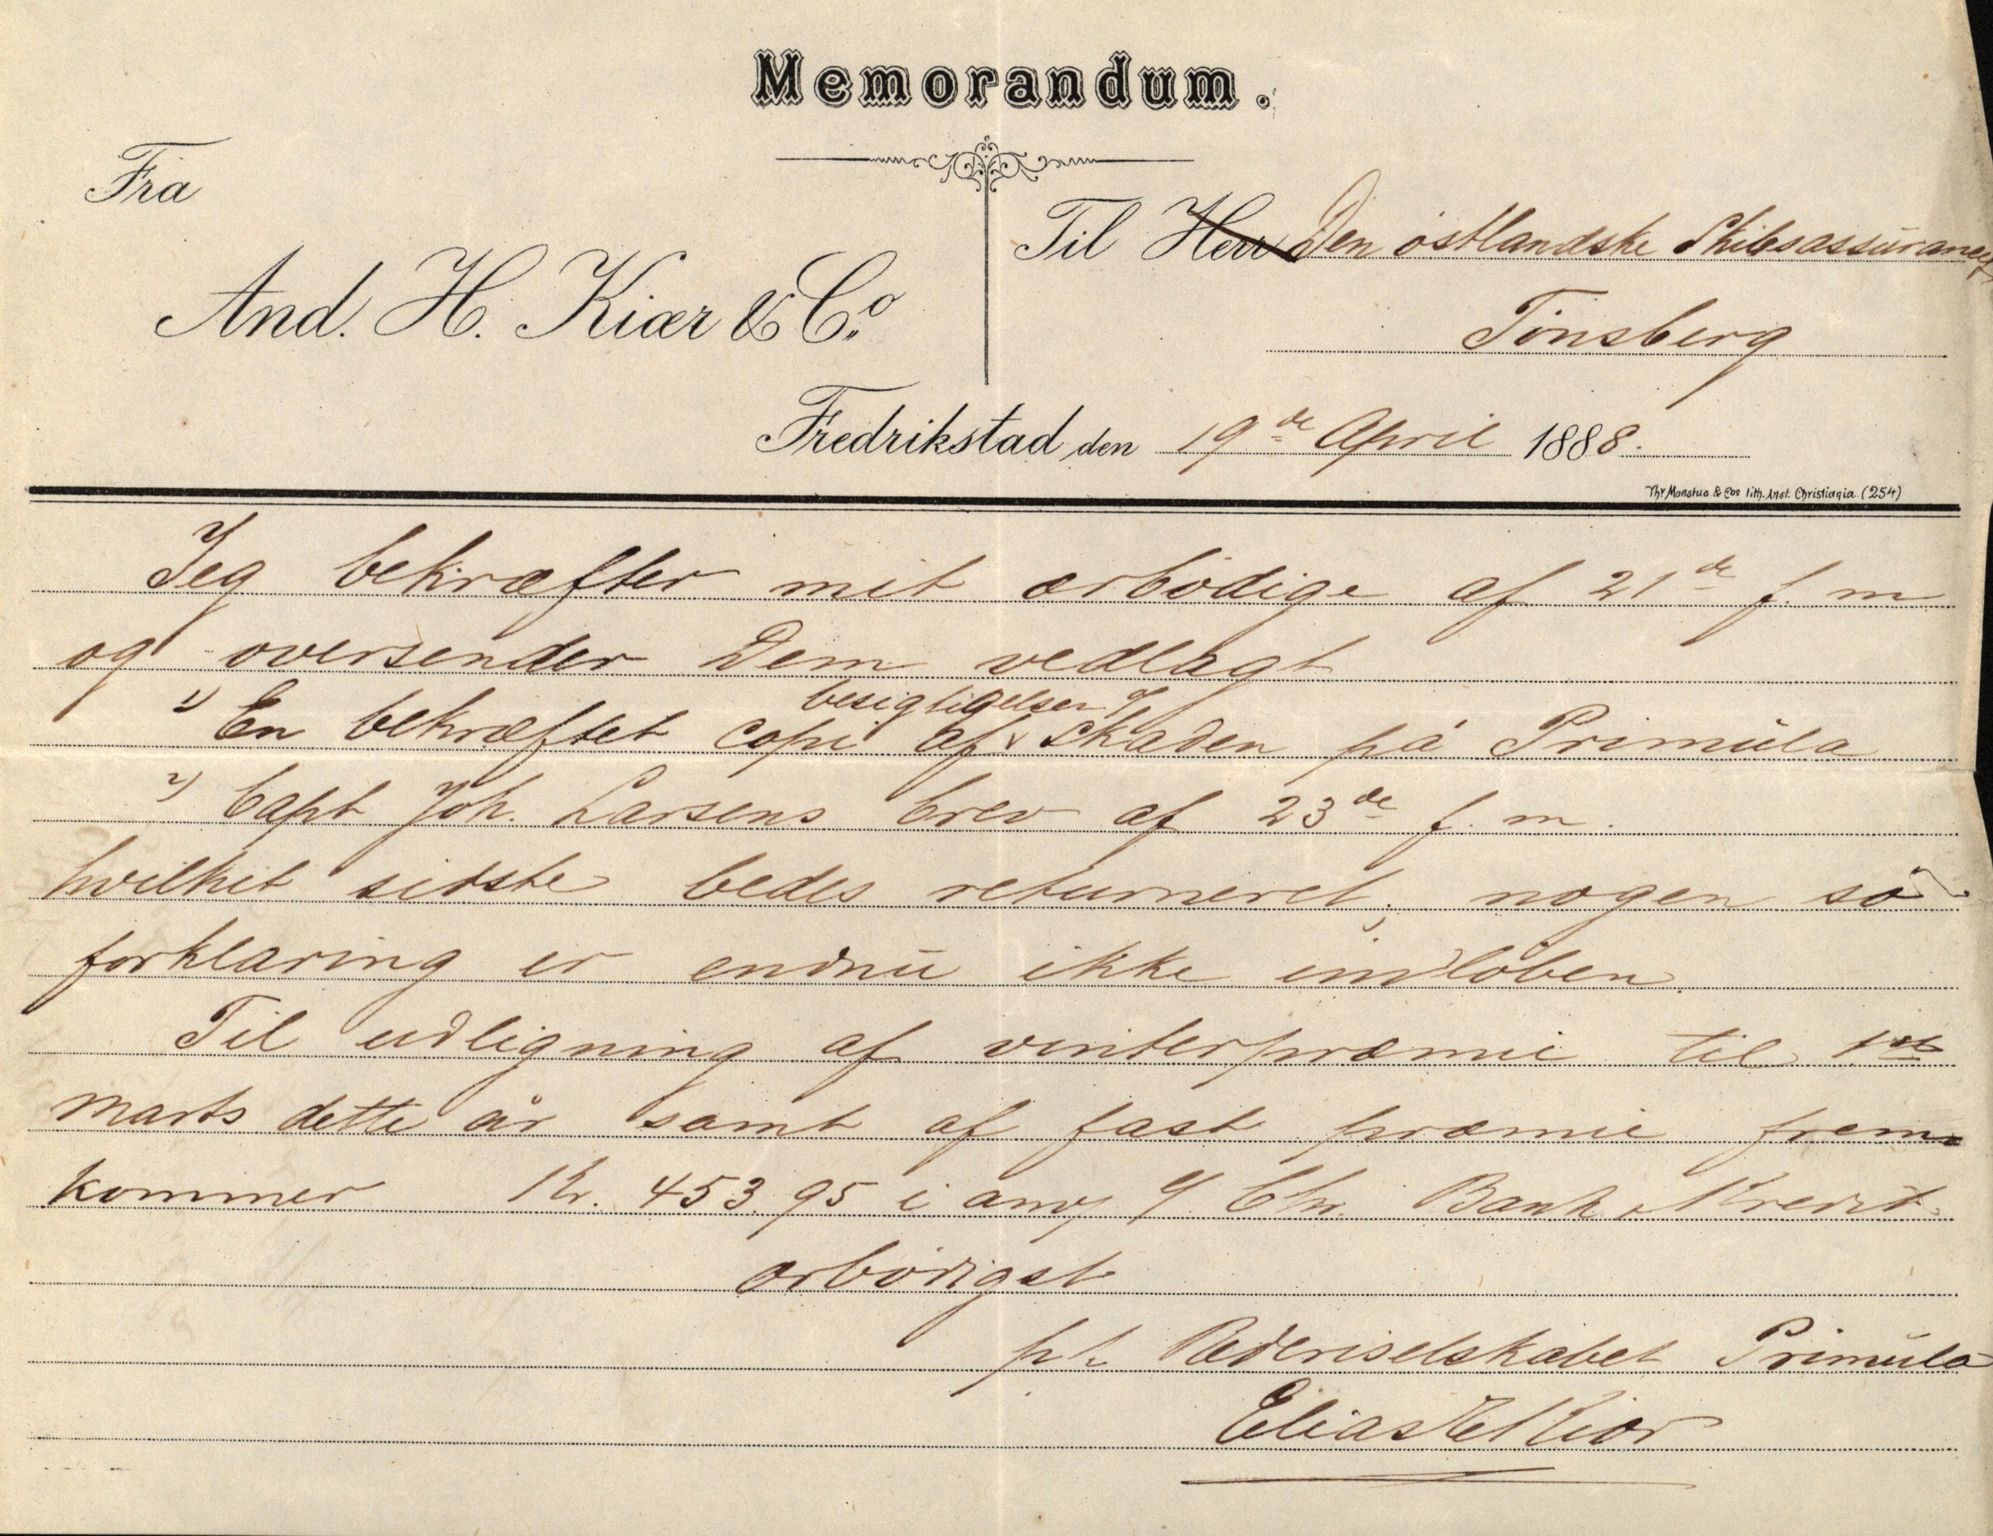 Memorandum.
Fra
Til Herr Den östlandske Skibsassurancef
And. H. Kiær & Co.
Tönsberg
Fredrikstad den 19de April 1888.
Thr Moestue & Cos lith. Anst. Christiania (254)
Jeg bekræfter mit ærbödige af 21de f. m
og oversender Dem vedlagt
besigtigelsen af
1) En bekræftet copi af skaden på Primula
2) Capt Joh. Larsens brev af 23de f. m.
hvilket sidste bedes returneret; nogen sö-
forklaring er endnu ikke indlöben.
Til udligning af vinterpræmie til 1ste
Marts dette år samt af fast præmie frem-
kommer Kr. 453.95 i anv / Chr. Bank & Kredit.
ærbödigst
pt Rederiselskabet Primula
Elias C Kiær